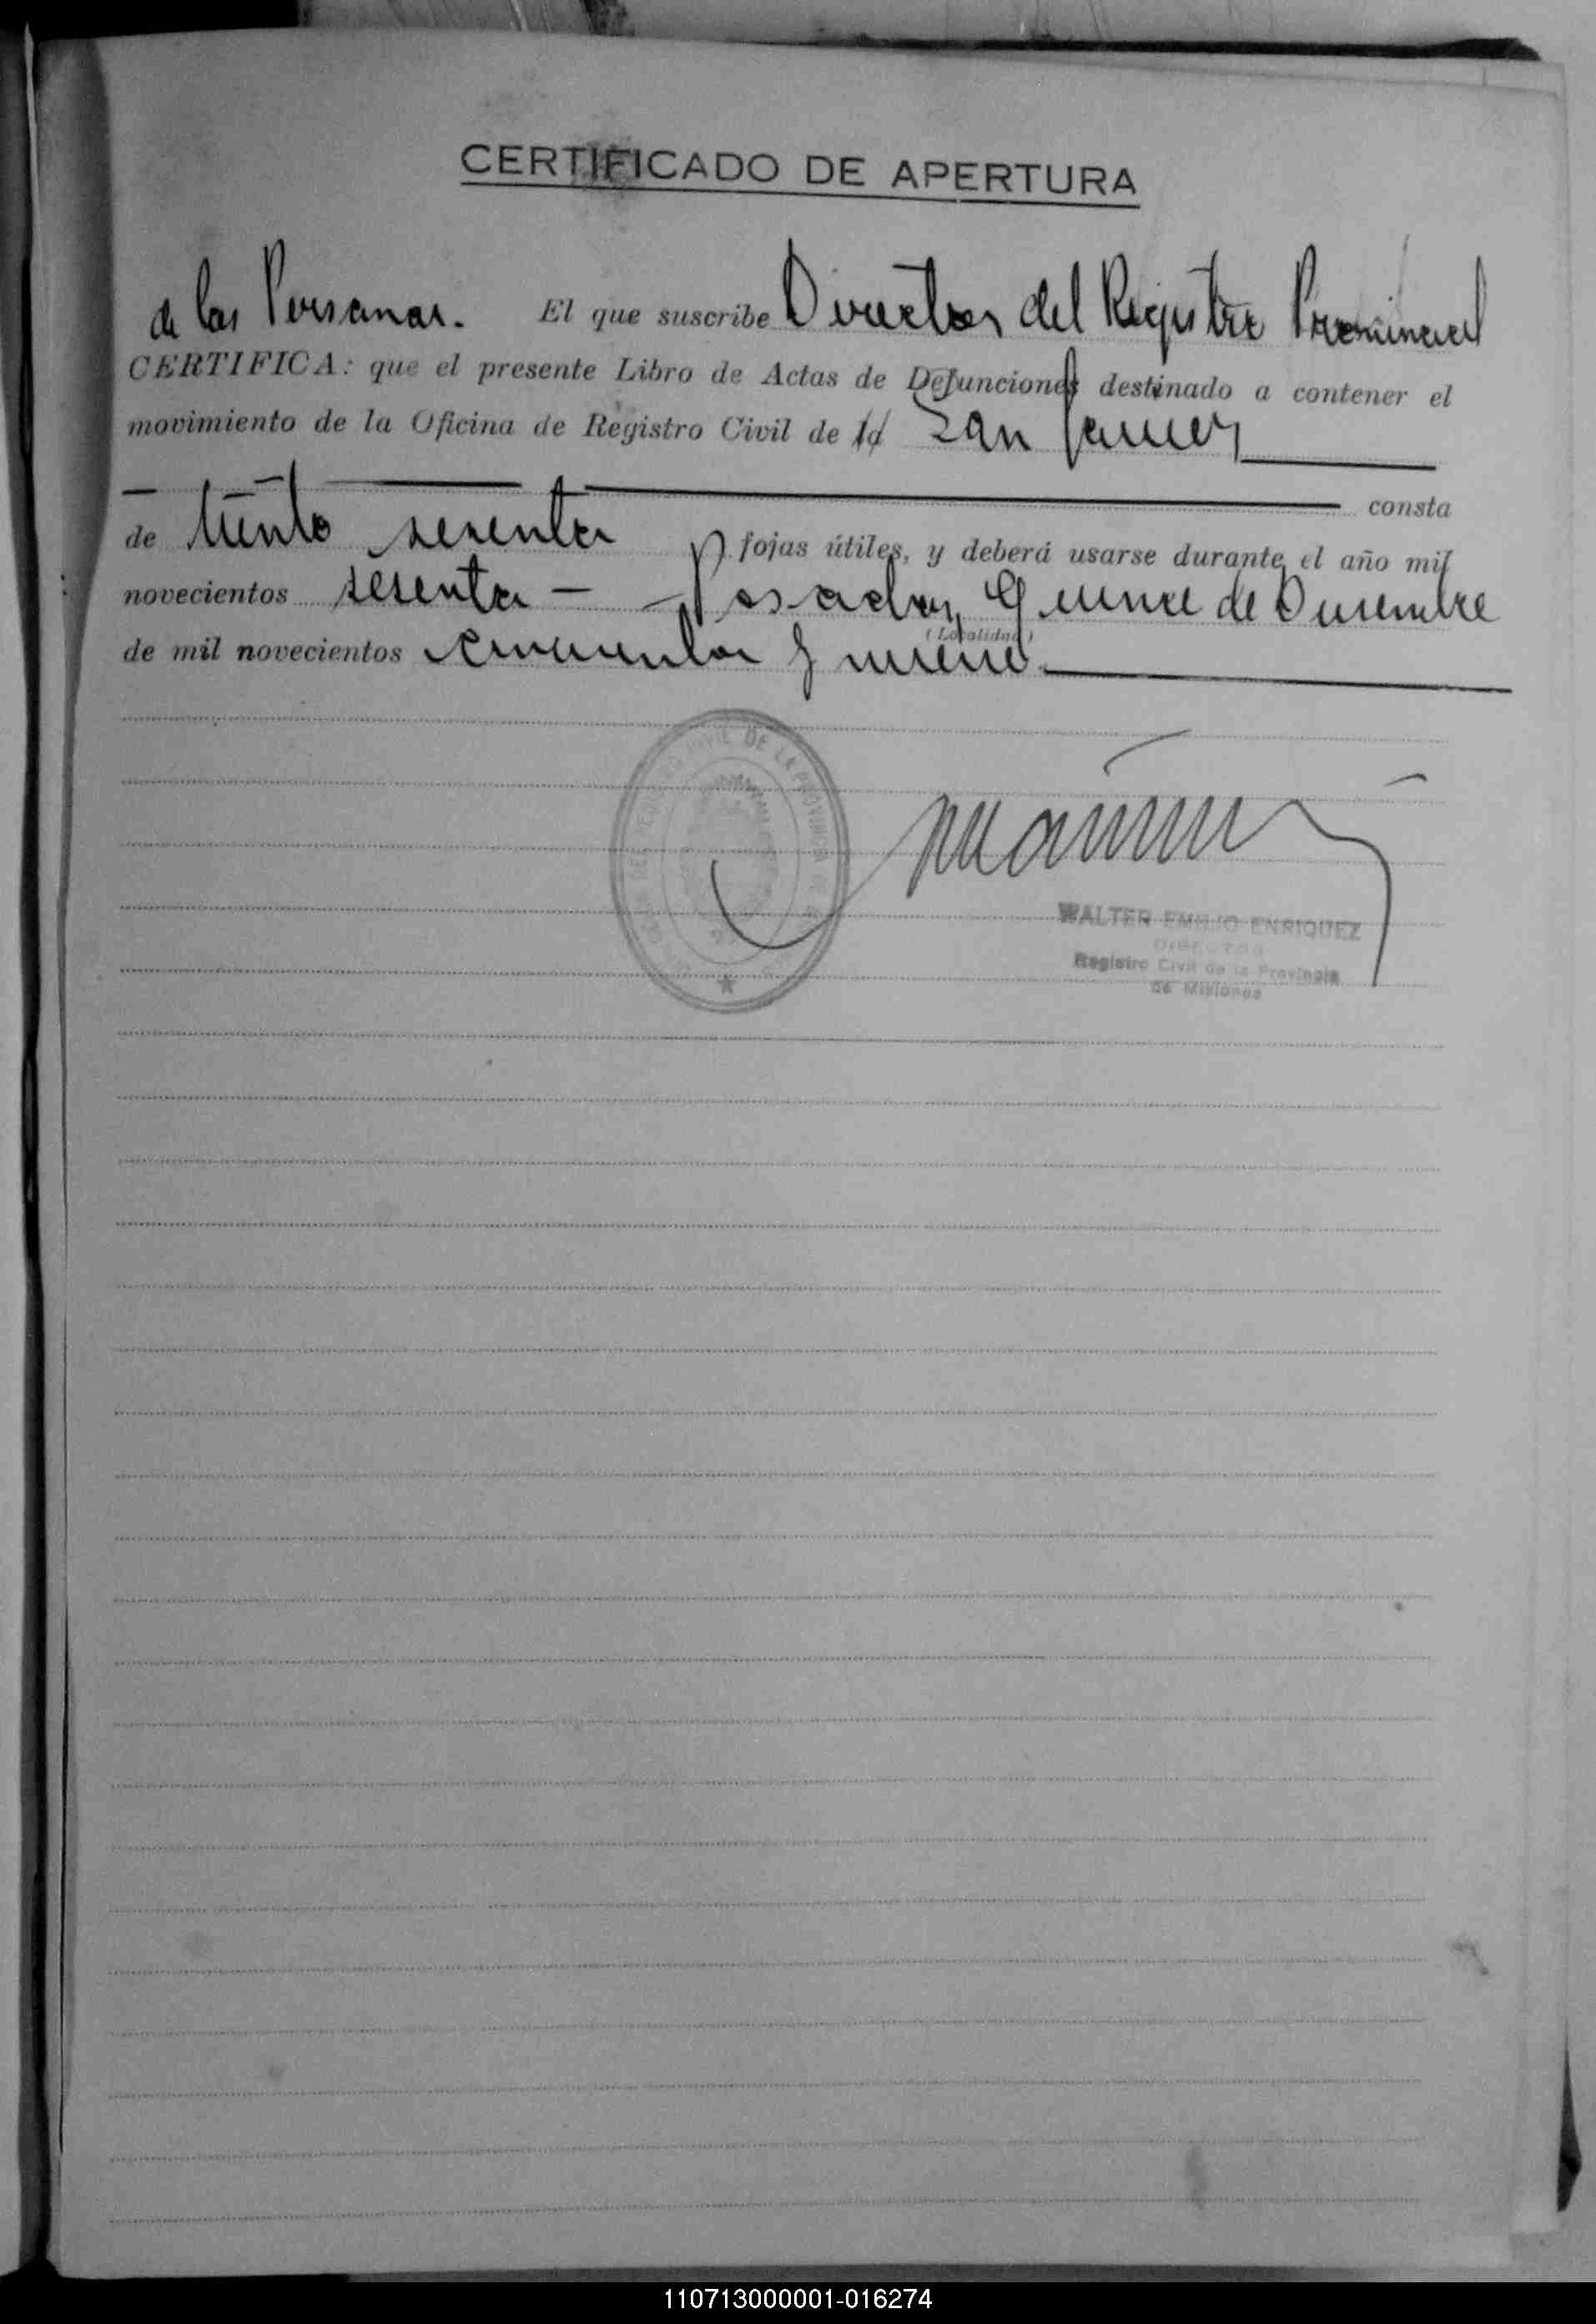 CERTIFICADO DE APERTURA
de las Personas. El que suscribe Director del Registro Provincial
CERTIFICA: que el presente Libro de Actas de Defunciones destinado a contener el
movimiento de la Oficina de Registro Civil de San Javier
consta
de Ciento sesenta fojas útiles, y deberá usarse durante el año mil
novecientos sesenta - Posadas, Quince de Diciembre
(Localidad)
de mil novecientos cincuenta y nueve.
CIVIL DE LA PROVINCIA DE
WALTER EMILIO ENRIQUEZ
DIRECTOR
Registro Civil de la Provincia
de Misiones
110713000001-016274